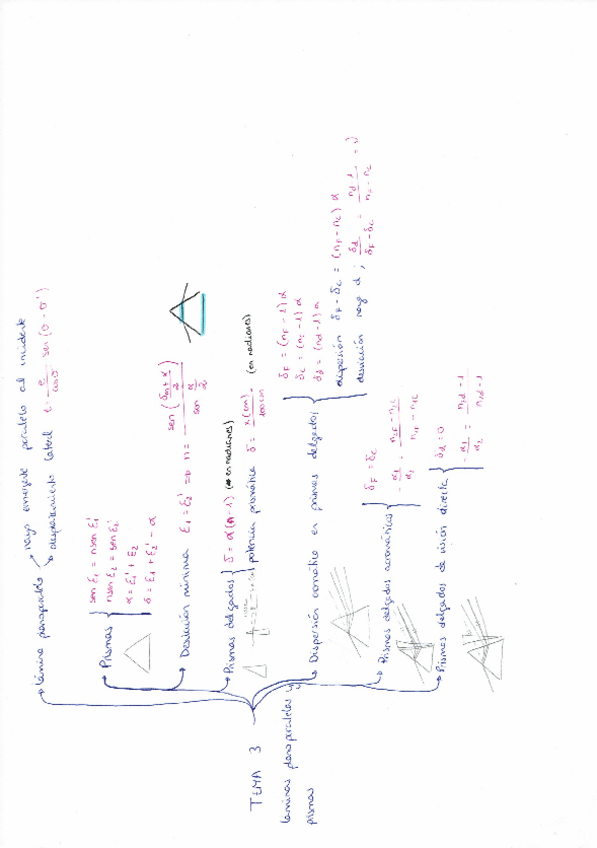 TEMA 3
láminas planoparalelas y
prismas
lámina planoparalela
rayo emergente paralelo al incidente
desplazamiento lateral t = e / cos σ' sen (σ - σ')
Prismas
sen ε1 = n sen ε1'
n sen ε2 = sen ε2'
α = ε1' + ε2
δ = ε1 + ε2' - α
Desviación mínima ε1 = ε2' => n = sen ( (δm + α) / 2 ) / sen α/2
Prismas delgados δ = α (n - 1) (en radianes)
potencia prismática δ = x (cm) / 100 cm (en radianes)
Dispersión cromática en prismas delgados
δF = (nF - 1) α
δc = (nc - 1) α
δd = (nd - 1) α
dispersión δF - δc = (nF - nc) α
desviación rayo d ; δd / (δF - δc) = (nd - 1) / (nF - nc) = ν
Prismas delgados acromáticos
δF = δc
- α1 / α2 = (n2F - n2c) / (n1F - n1c)
Prismas delgados de visión directa
δd = 0
- α1 / α2 = (n2d - 1) / (n1d - 1)